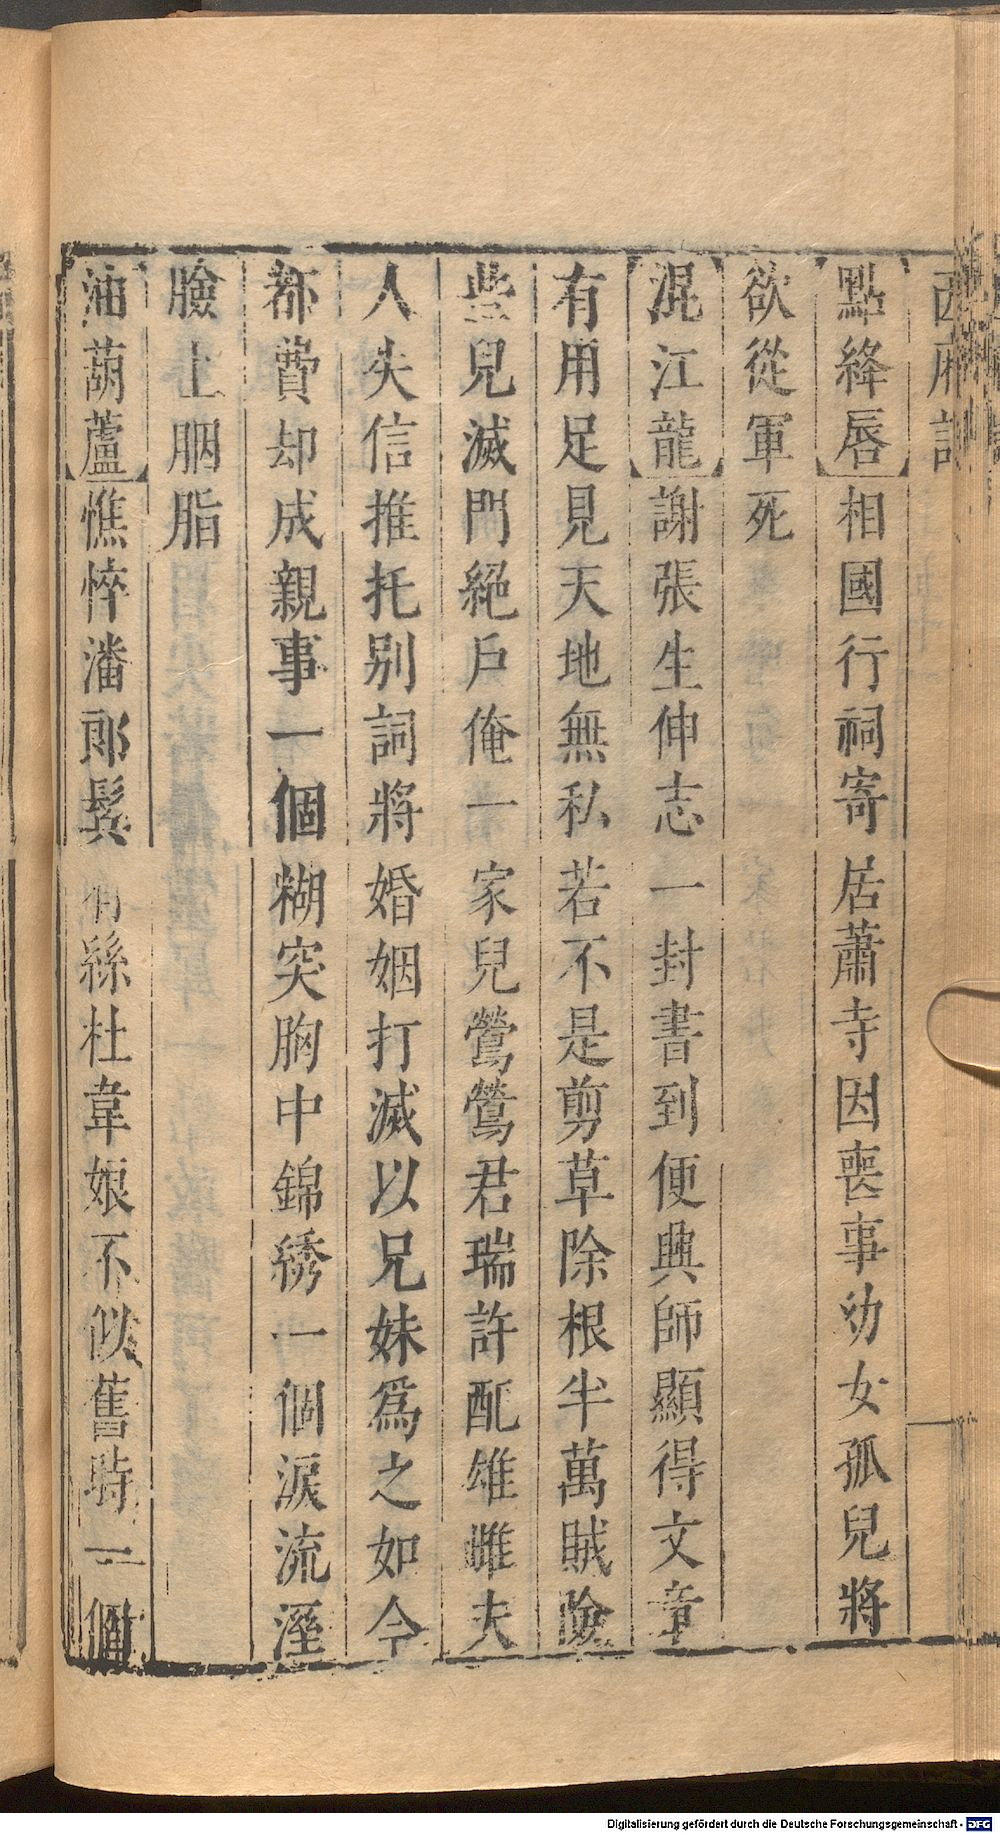 西廂記
點絳唇相國行祠寄居蕭寺因喪事幼女孤兒將
欲從軍死
混江龍謝張生伸志一封書到便興師顯得文章
有用足見天地無私若不是剪草除根半萬賊險
些兒滅門絕戶俺一家兒鶯鶯君瑞許配雄雌夫
人失信推托別詞將婚姻打滅以兄妹爲之如今
都費却成親事一個糊突胸中錦綉一個淚流溼
臉上胭脂
油葫蘆憔悴潘郎鬂有絲杜韋娘不似舊時一個
Digitalisierung gefördert durch die Deutsche Forschungsgemeinschaft - DFG